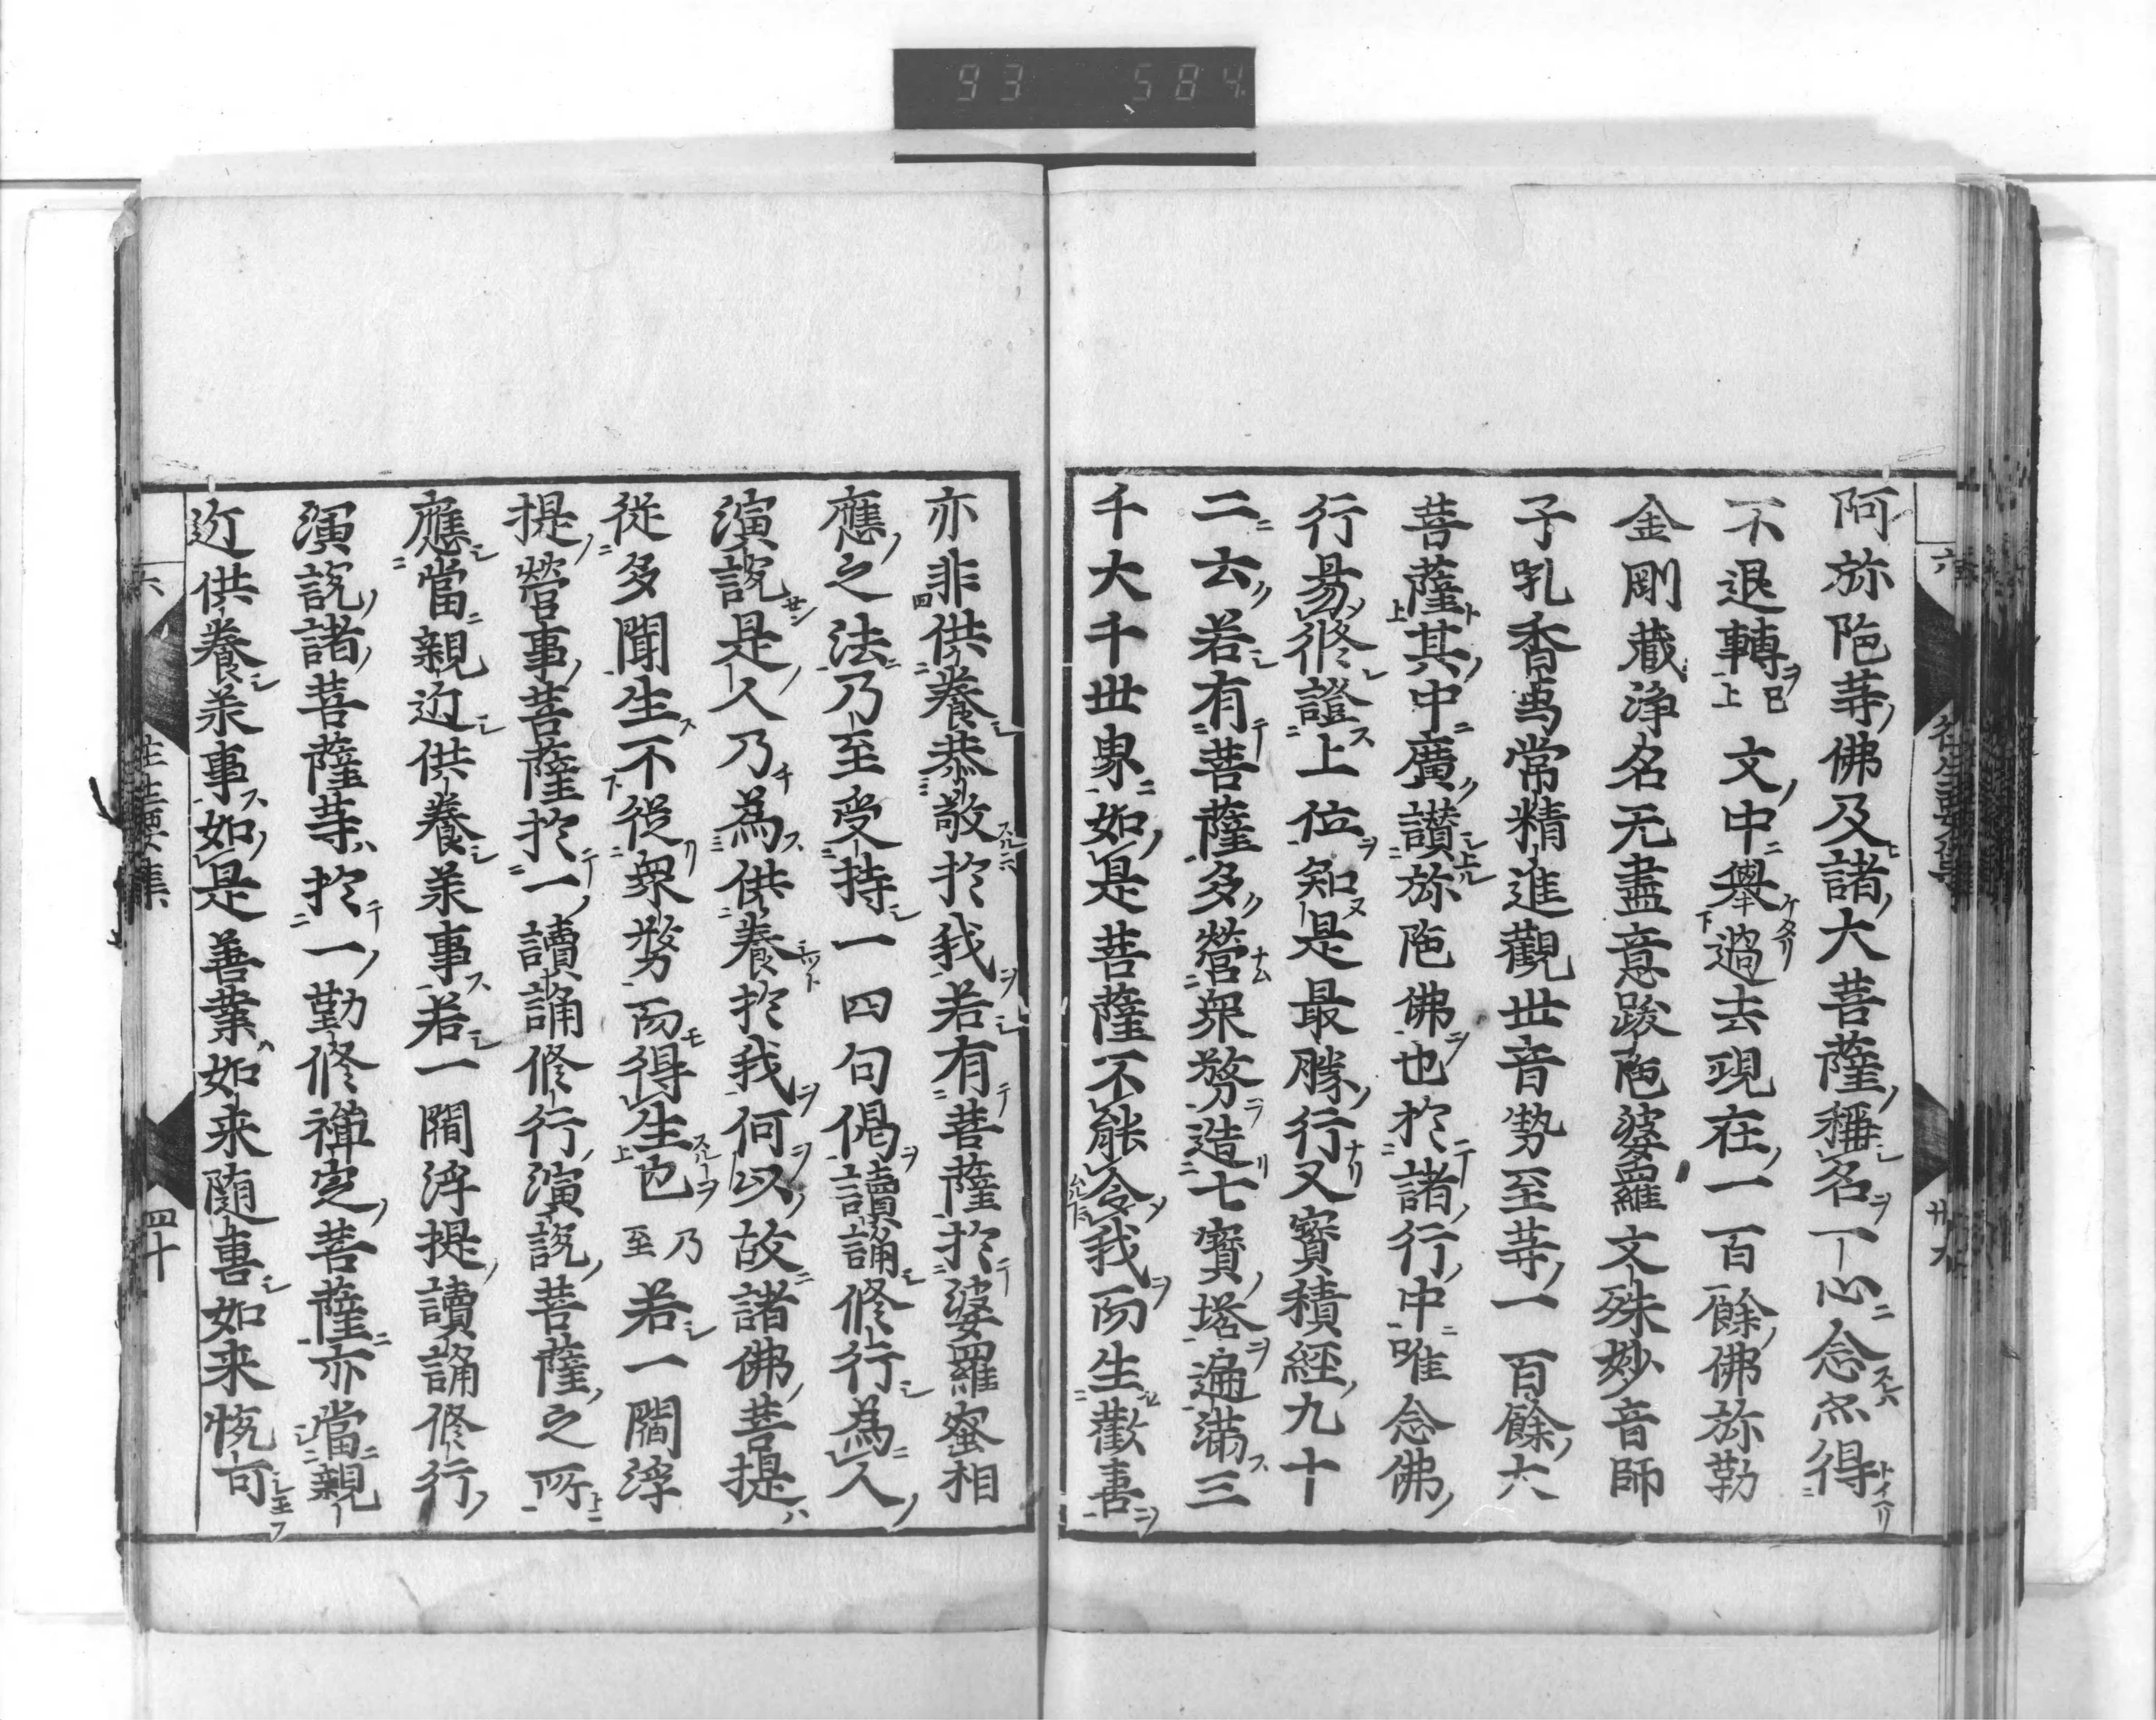 93 584
阿弥陁等佛及諸大菩薩稱名一心念亦得
不退轉已上文中舉過去現在一百餘佛弥勒
金剛蔵浄名无盡意跋陁婆羅文殊妙音師
子吼香象常精進觀世音勢至等一百餘大
菩薩其中廣讃弥陁佛也於諸行中唯念佛
行易修證上位知是最勝行又寳積經九十
二云若有菩薩多營衆務造七寳塔遍滿三
千大千世界如是菩薩不能令我而生歡喜
亦非供養恭敬於我若有菩薩於波羅蜜相
應之法乃至受持一四句偈讀誦修行為人
演説是人乃為供養於我何以故諸佛菩提
從多聞生不從衆務而得生也乃至若一閻浮
提營事菩薩於一讀誦修行演説菩薩之所
應當親近供養羕事若一閻浮提讀誦修行
演説諸菩薩等於一勤修禪定菩薩亦當親
近供養羕事如是善業如来随喜如来恱可
六
四十